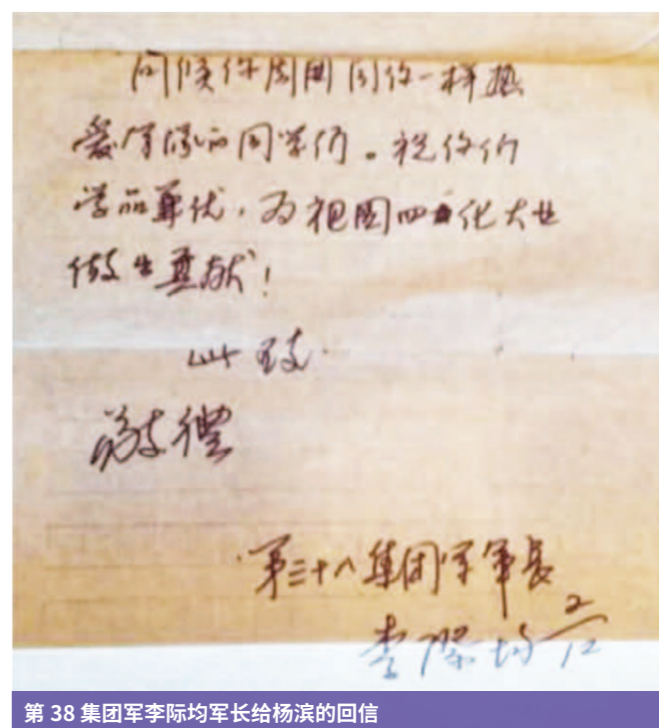 问候你周围同你一样热
爱军队的同学们。祝你们
学品兼优,为祖国四化大业
做出贡献!
此致
敬礼
第三十八集团军军长
李际均 2/12
第 38 集团军李际均军长给杨滨的回信